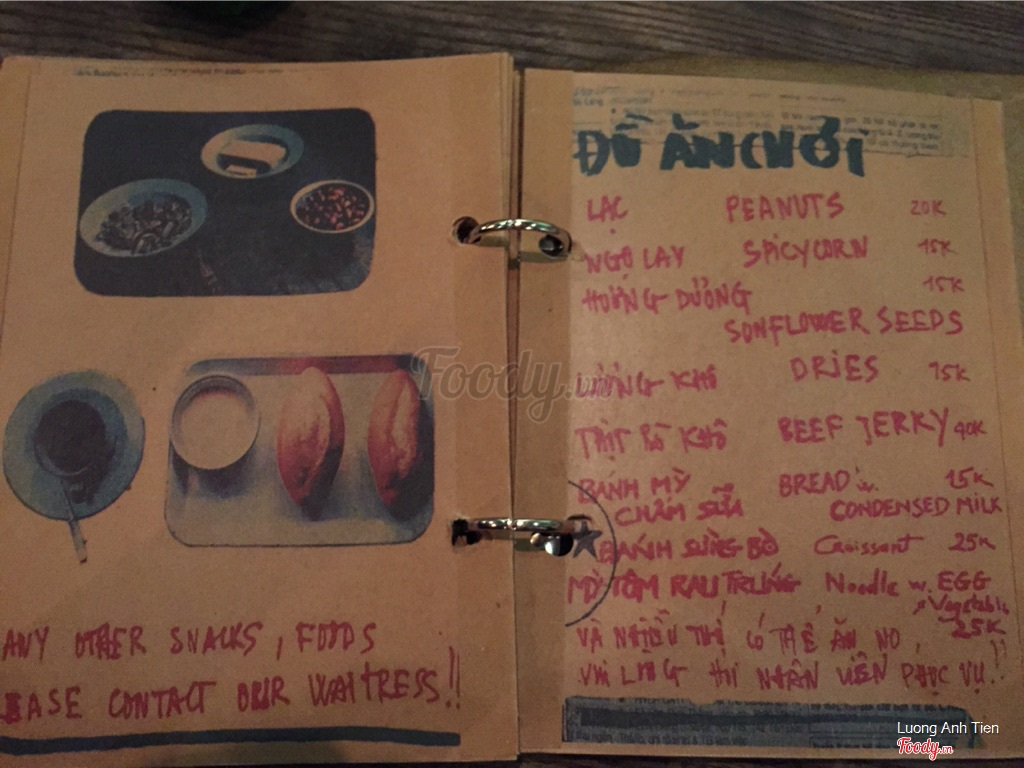 ANY OTHER SNACKS, FOODS
EASE CONTACT OUR WAITRESS!!
ĐỒ ĂN CHƠI
LẠC PEANUTS 20K
NGÔ CAY SPICYCORN 15K
HƯỚNG DƯƠNG 15K
SONFLOWER SEEDS
KHÔ DRIES 15K
THỊT BÒ KHÔ BEEF JERKY 40K
BÁNH MỲ BREAD w. 15K
CHẤM SỮA CONDENSED MILK
BÁNH SỪNG BÒ Croissant 25K
MỲ TÔM RAU TRỨNG Noodle w. EGG
Vegetable
25K
VÀ NHIỀU THỨ CÓ THỂ ĂN NO,
VUI LÒNG HỎI NHÂN VIÊN PHỤC VỤ!!
Foody.vn
Luong Anh Tien
Foody.vn